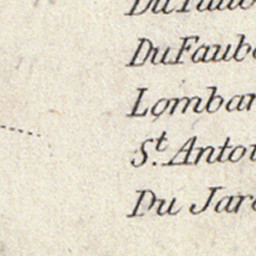 Du Faub
Lombar
S.t Antoi
Du Jar